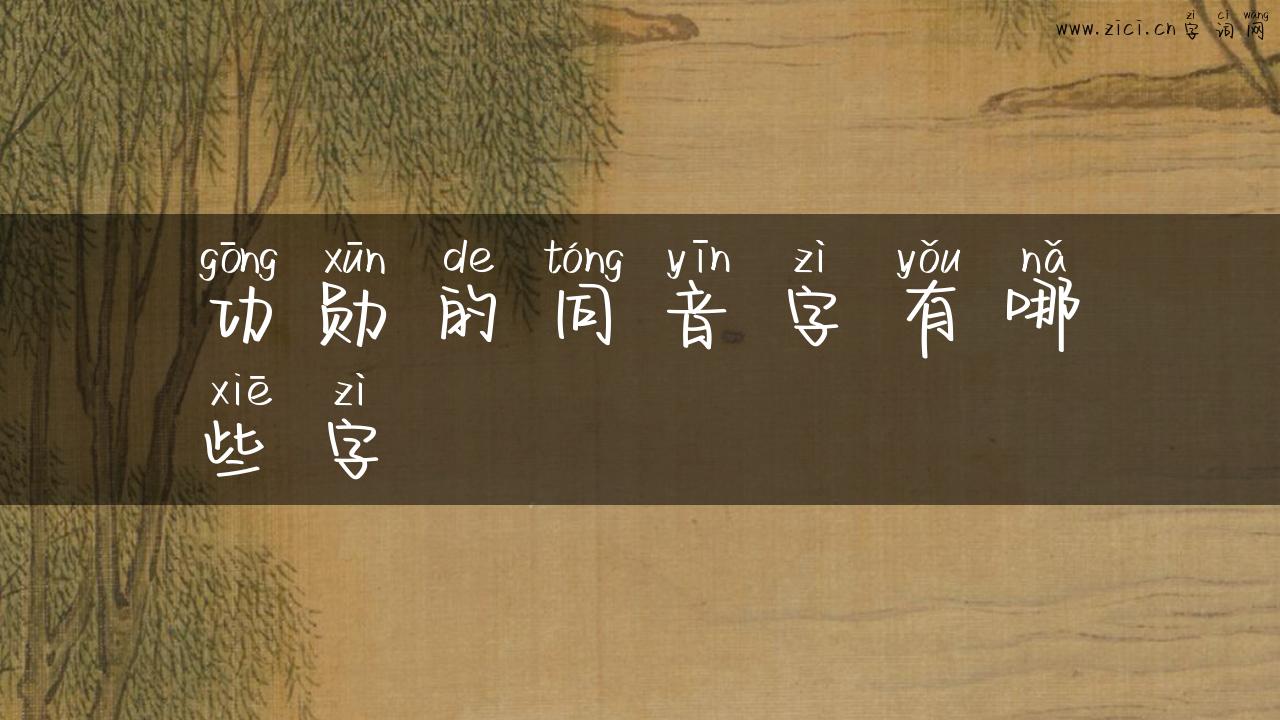 zì cí wǎng
www.zici.cn 字词网
gōng xūn de tóng yīn zì yǒu nǎ
功勋的同音字有哪
xiē zì
些字